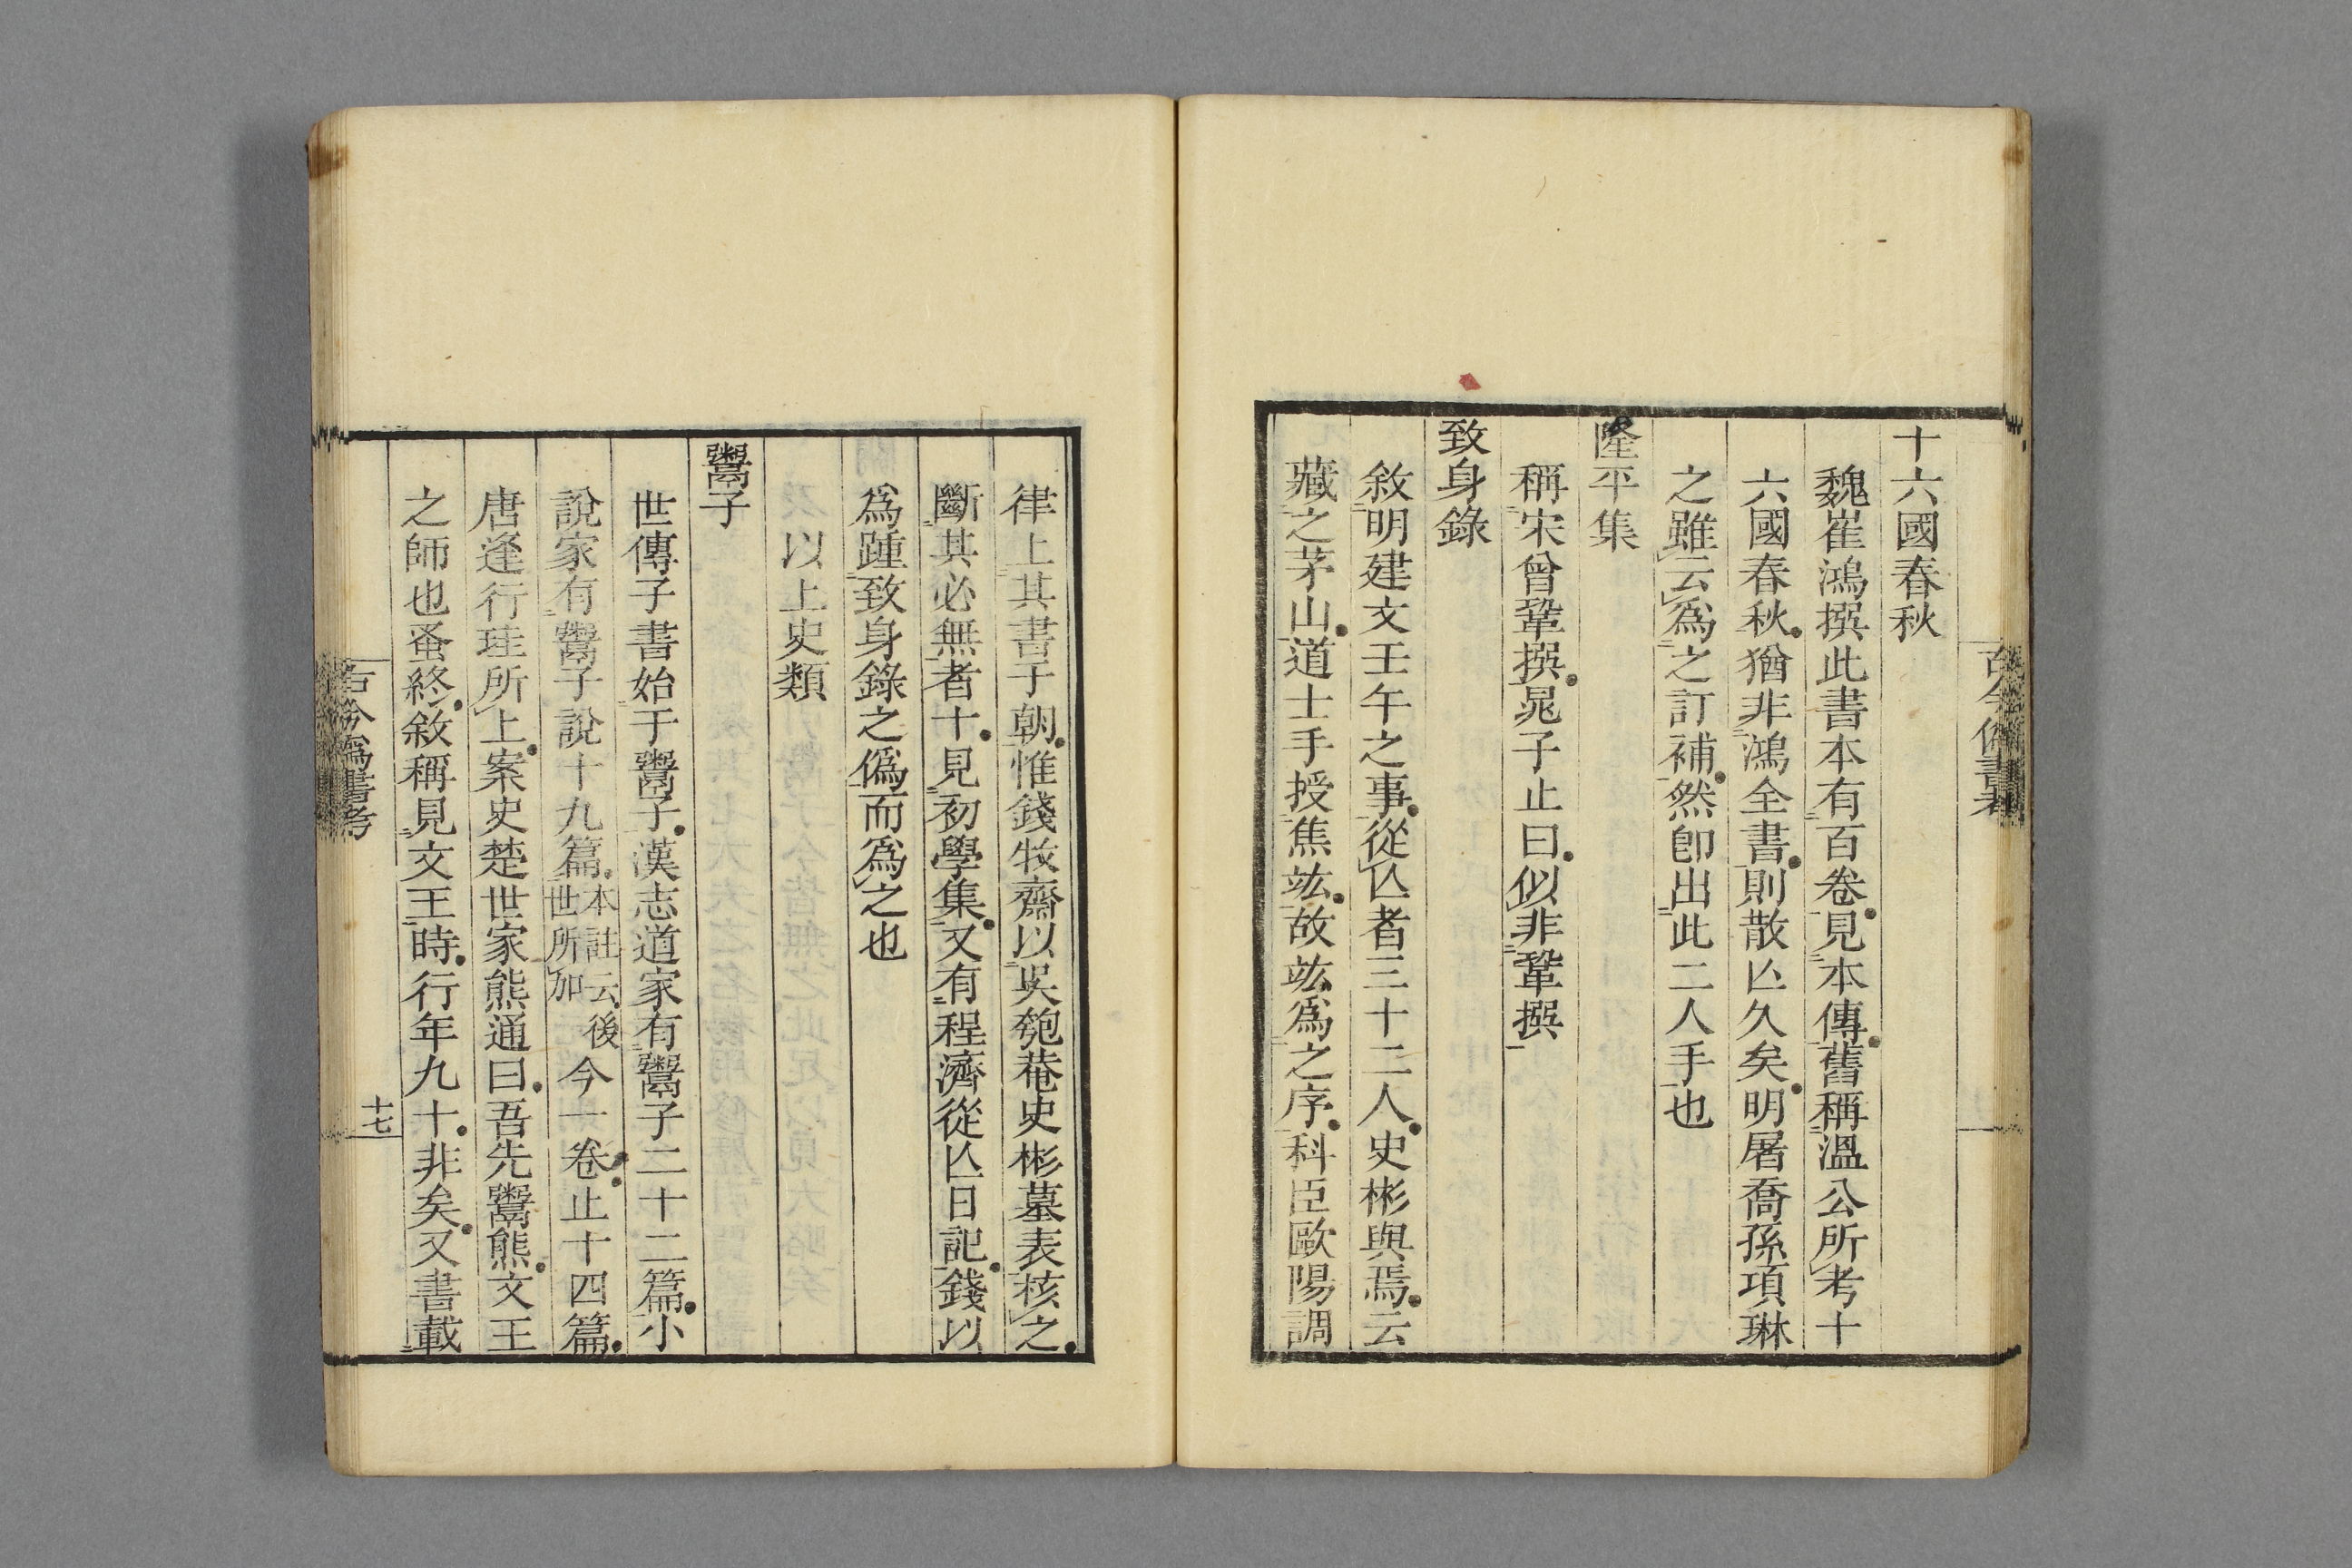 古今僞書考
十六國春秋
魏崔鴻撰此書本有百卷見本傳舊稱溫公所考十
六國春秋猶非鴻全書則散亾久矣明屠喬孫項琳
之雖云爲之訂補然卽出此二人手也
隆平集
稱宋曾鞏撰晁子止曰似非鞏撰
致身錄
敘明建文壬午之事從亾者三十二人史彬與焉云
藏之茅山道士手授焦竑故竑爲之序科臣歐陽調
律上其書于朝惟錢牧齋以吳匏菴史彬墓表核之
斷其必無者十見初學集又有程濟從亾日記錢以
爲踵致身錄之僞而爲之也
以上史類
鬻子
世傳子書始于鬻子漢志道家有鬻子二十二篇小
說家有鬻子說十九篇本註云後世所加今一卷止十四篇
唐逄行珪所上案史楚世家熊通曰吾先鬻熊文王
之師也蚤終敘稱見文王時行年九十非矣又書載
古今僞書考
十七